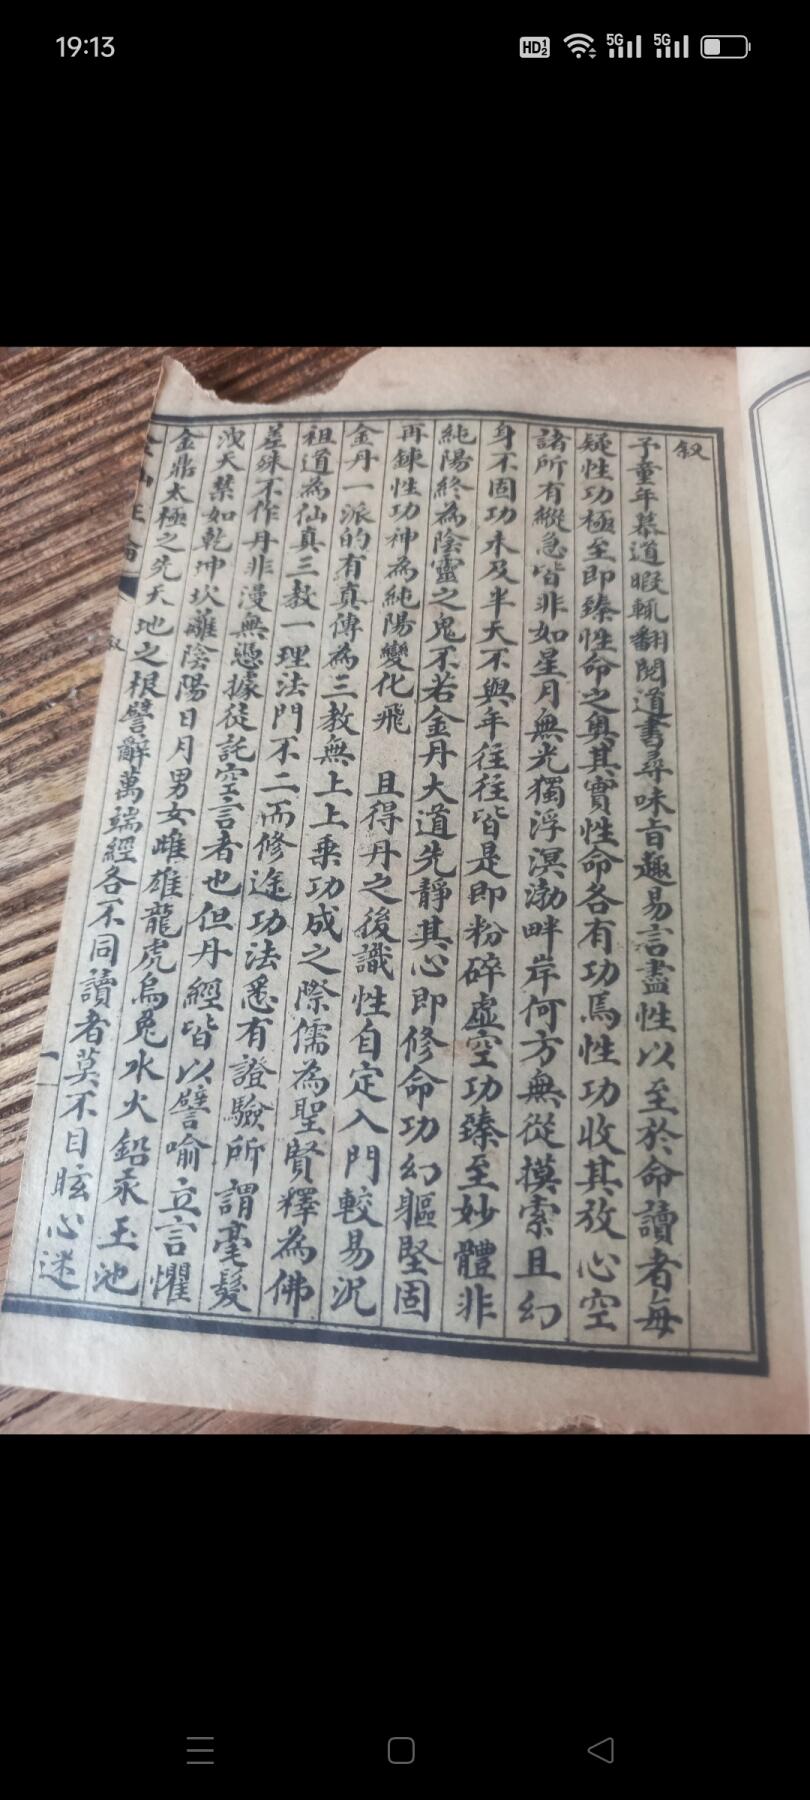 19:13
HD 1 2
5G
5G
叙
予童年慕道暇輒翻閱道書尋味旨趣易言盡性以至於命讀者每
疑性功極至即臻性命之奧其實性命各有功焉性功收其放心空
諸所有縱急皆非如星月無光獨浮溟渤畔岸何方無從摸索且幻
身不固功未及半天不與年往往皆是即粉碎虛空功臻至妙體非
純陽終為陰靈之鬼不若金丹大道先靜其心即修命功幻軀堅固
再鍊性功神為純陽變化飛 且得丹之後識性自定入門較易況
金丹一派的有真傳為三教無上上乘功成之際儒為聖賢釋為佛
祖道為仙真三教一理法門不二而修途功法悉有證驗所謂毫髮
差殊不作丹非漫無憑據徒託空言者也但丹經皆以譬喻立言懼
洩天禁如乾坤坎離陰陽日月男女雌雄龍虎烏兔水火鉛汞玉池
金鼎太極之先天地之根譬辭萬端經各不同讀者莫不目眩心迷
論
叙
一